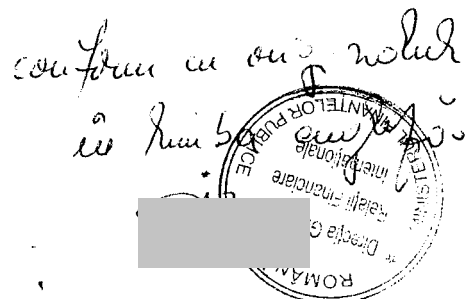 conform cu originalul
în limba engleză
MINISTERUL FINANȚELOR PUBLICE
ROMÂN
Direcția G
Relații Financiare
Internaționale